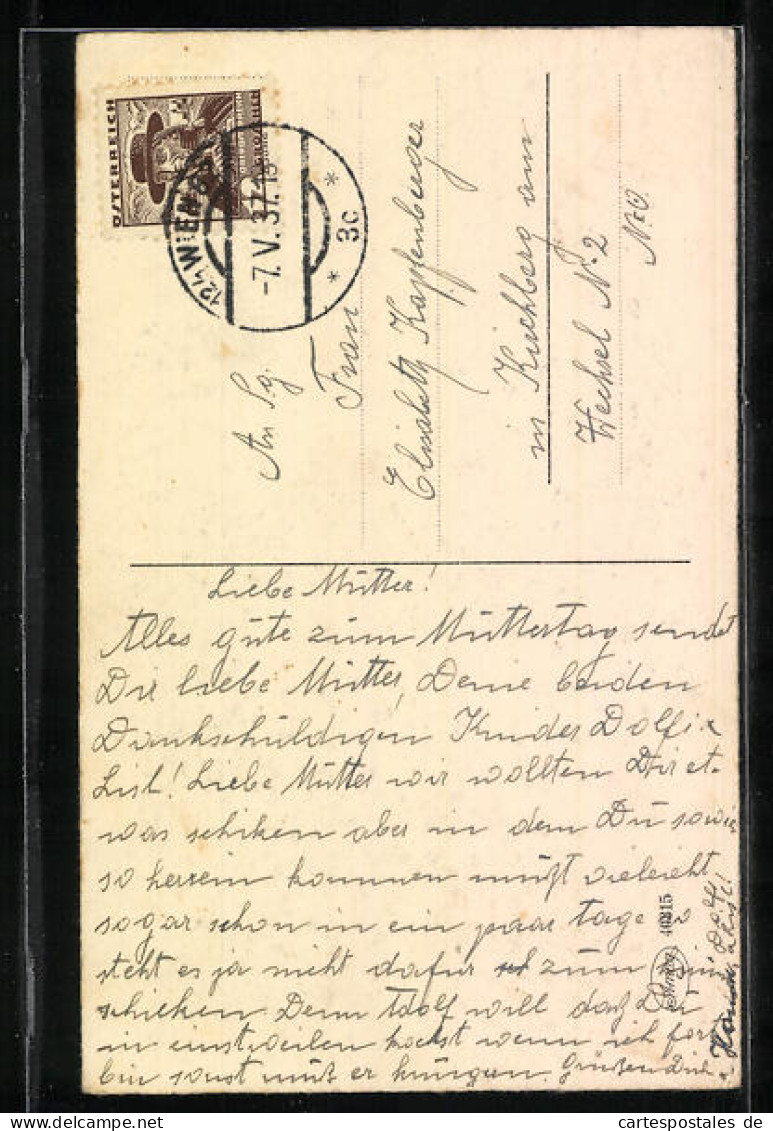 ÖSTERREICH
124 WIEN
-7. V. 37. 13
* 3c *
An Sg.
Frau
Elisabeth Kapfenberger
in Kirchberg am
Wechsel N. 2
N.Ö.
Liebe Mutter!
Alles gute zum Muttertag sendet
Dir liebe Mutter, Deine beiden
Dankschuldigen Kinder Dolfi
Lisl! Liebe Mutter wir wollten Dir et-
was schiken aber in dem Du sowie
so herrein kommen mußt vieleicht
sogar schon in ein paar tage so
steht es ja nicht dafür zum
schicken Denn Adolf will daß Du
in einstweilen kochst wenn ich fort
bin sonst muß er hungern. Grüßen Dich
46215
cartespostales de